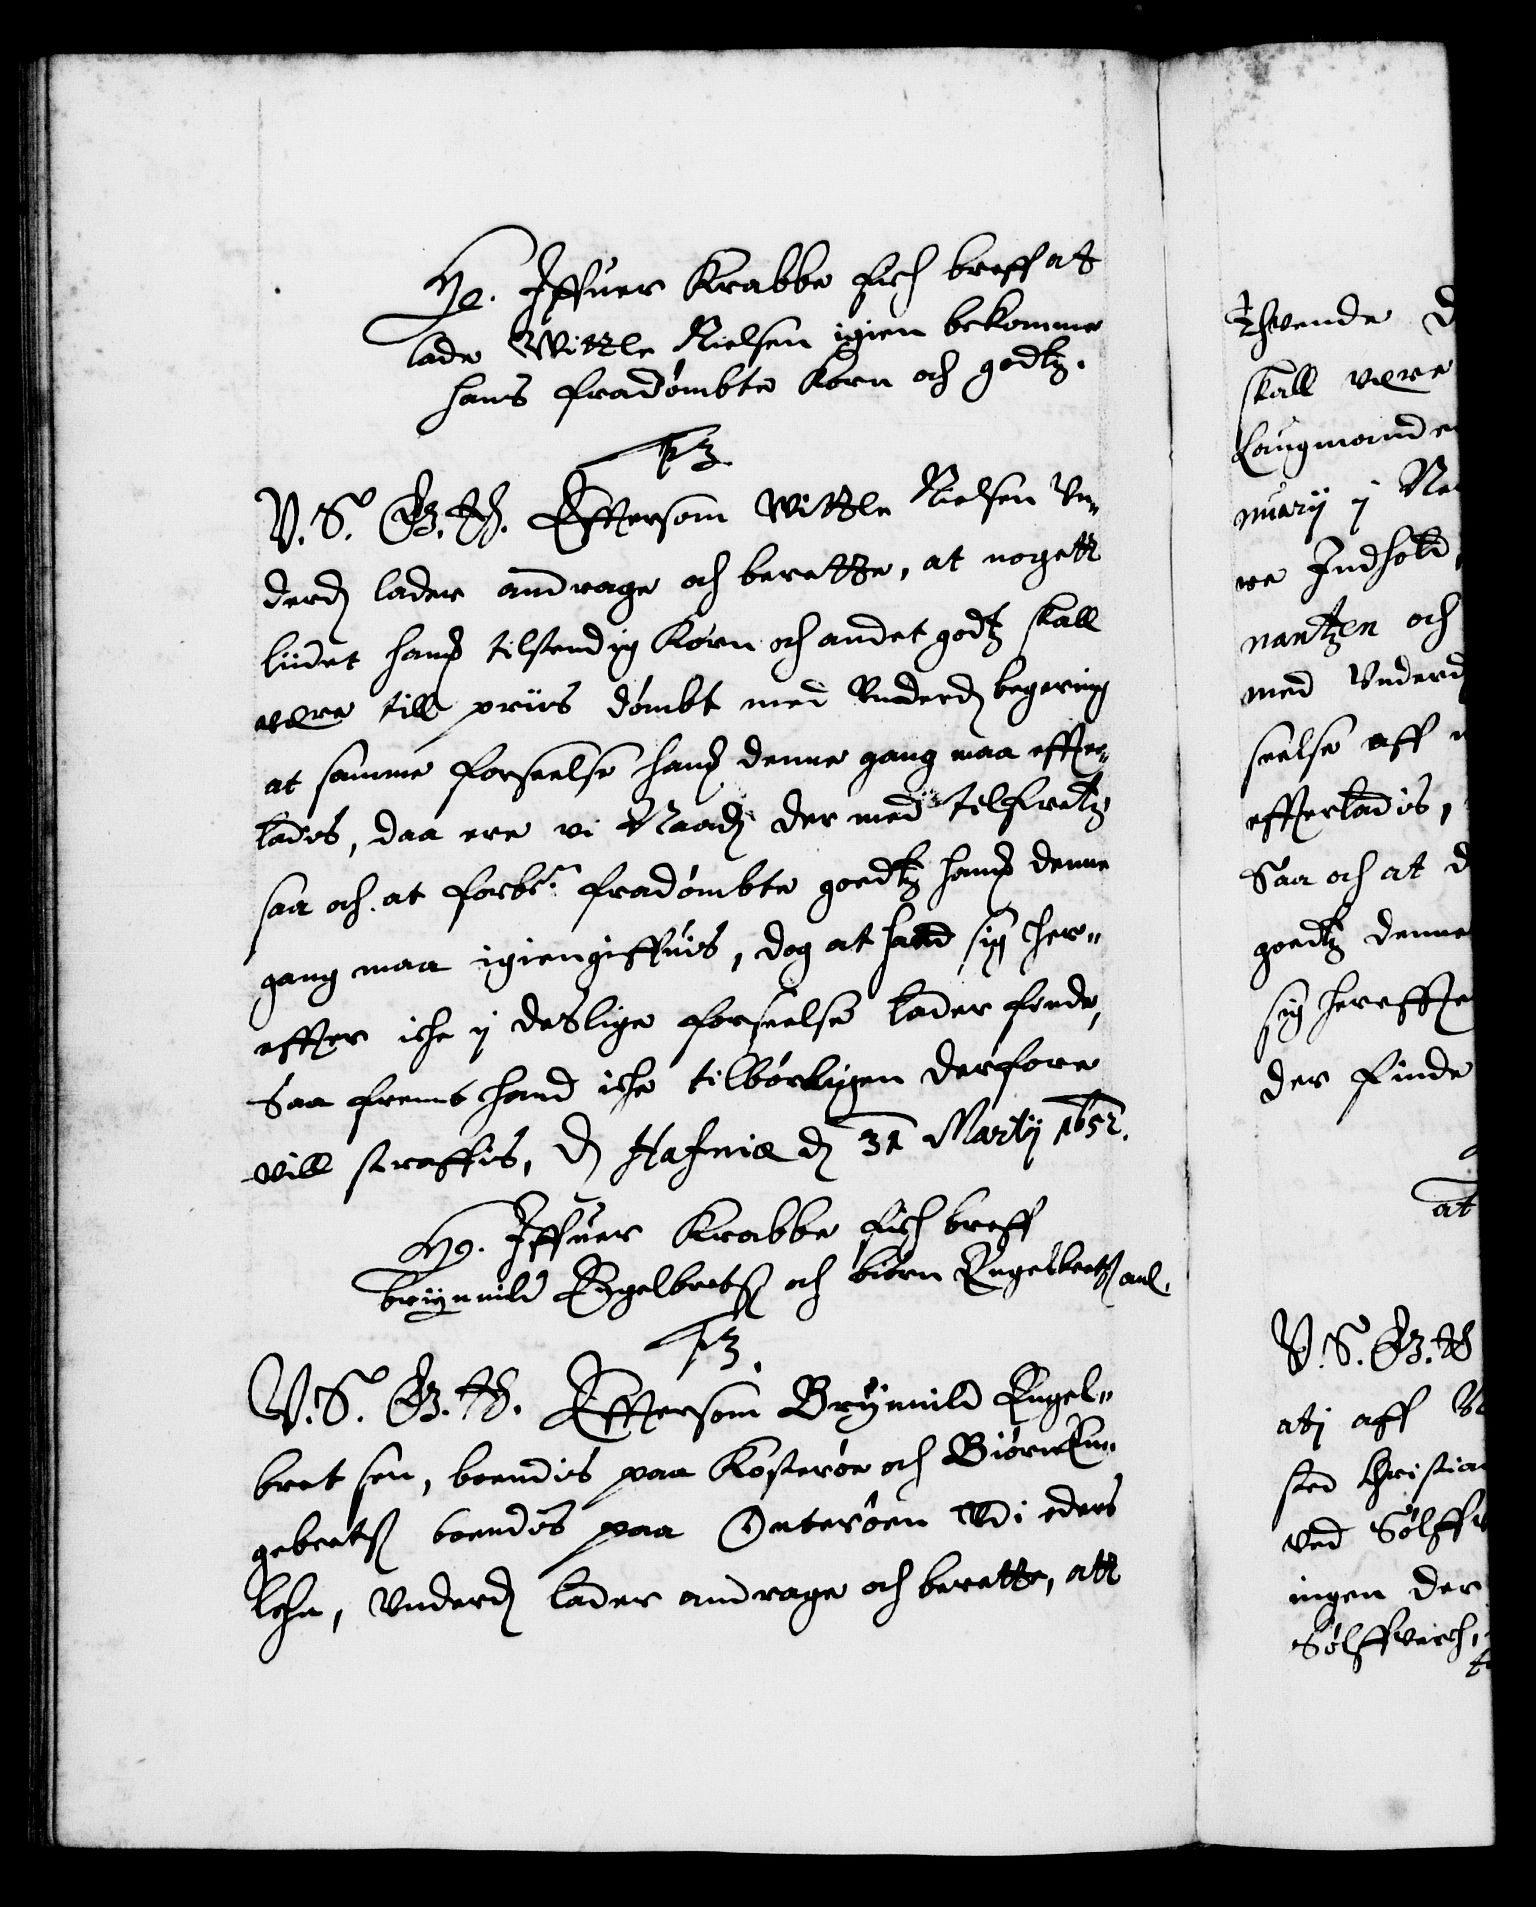 He. Iffuer Krabbe fich breff at
lade Wittle Nielsen igien bekomme
hans fradømbte Korn och godtz.
F 3
V. S. G. T. Effttersom Wittle Nielsen Vn„
derd lader andrage och berette, at nogett
liidet hans tilstendig Korn och andet godtz skall
være till priis dømbt med Vnderd begering
at samme forseelse hans denne gang maa effter„
ladis, daa ere vi Naad der med tilfredtz
saa och at forbte fradømbte goedtz hans denne
gang maa igiengiffuis, dog at hand sig her„
effter iche ij deslige forseelse lader finde,
Saa frembt hand iche tilbørligen derfore
vill straffis, d Hafniæ d 31 Martij 1652.
He. Iffuer Krabbe fich breff
brijnnild Engelbretß och biørn Engelbretß anl.
F 3.
V. S. G. T. Effttersom Brijnnild Engel„
bret sen, boendis paa Kosterøe och Biørn En„
gebretß boendis paa Onterøen vdi eders
lehn, Vnderd lader andrage och berette, att
Thvende
skall være
Laugmand
nuarij j
re Indhold,
nantzen och
med Vnderd
seelse aff
effterladis,
Saa och at d
goedtz denne
sig hereffte
der finde
at
V. S. G. T
atj aff
sted Christian
ved Sølff
ingen der
Sølffverch,